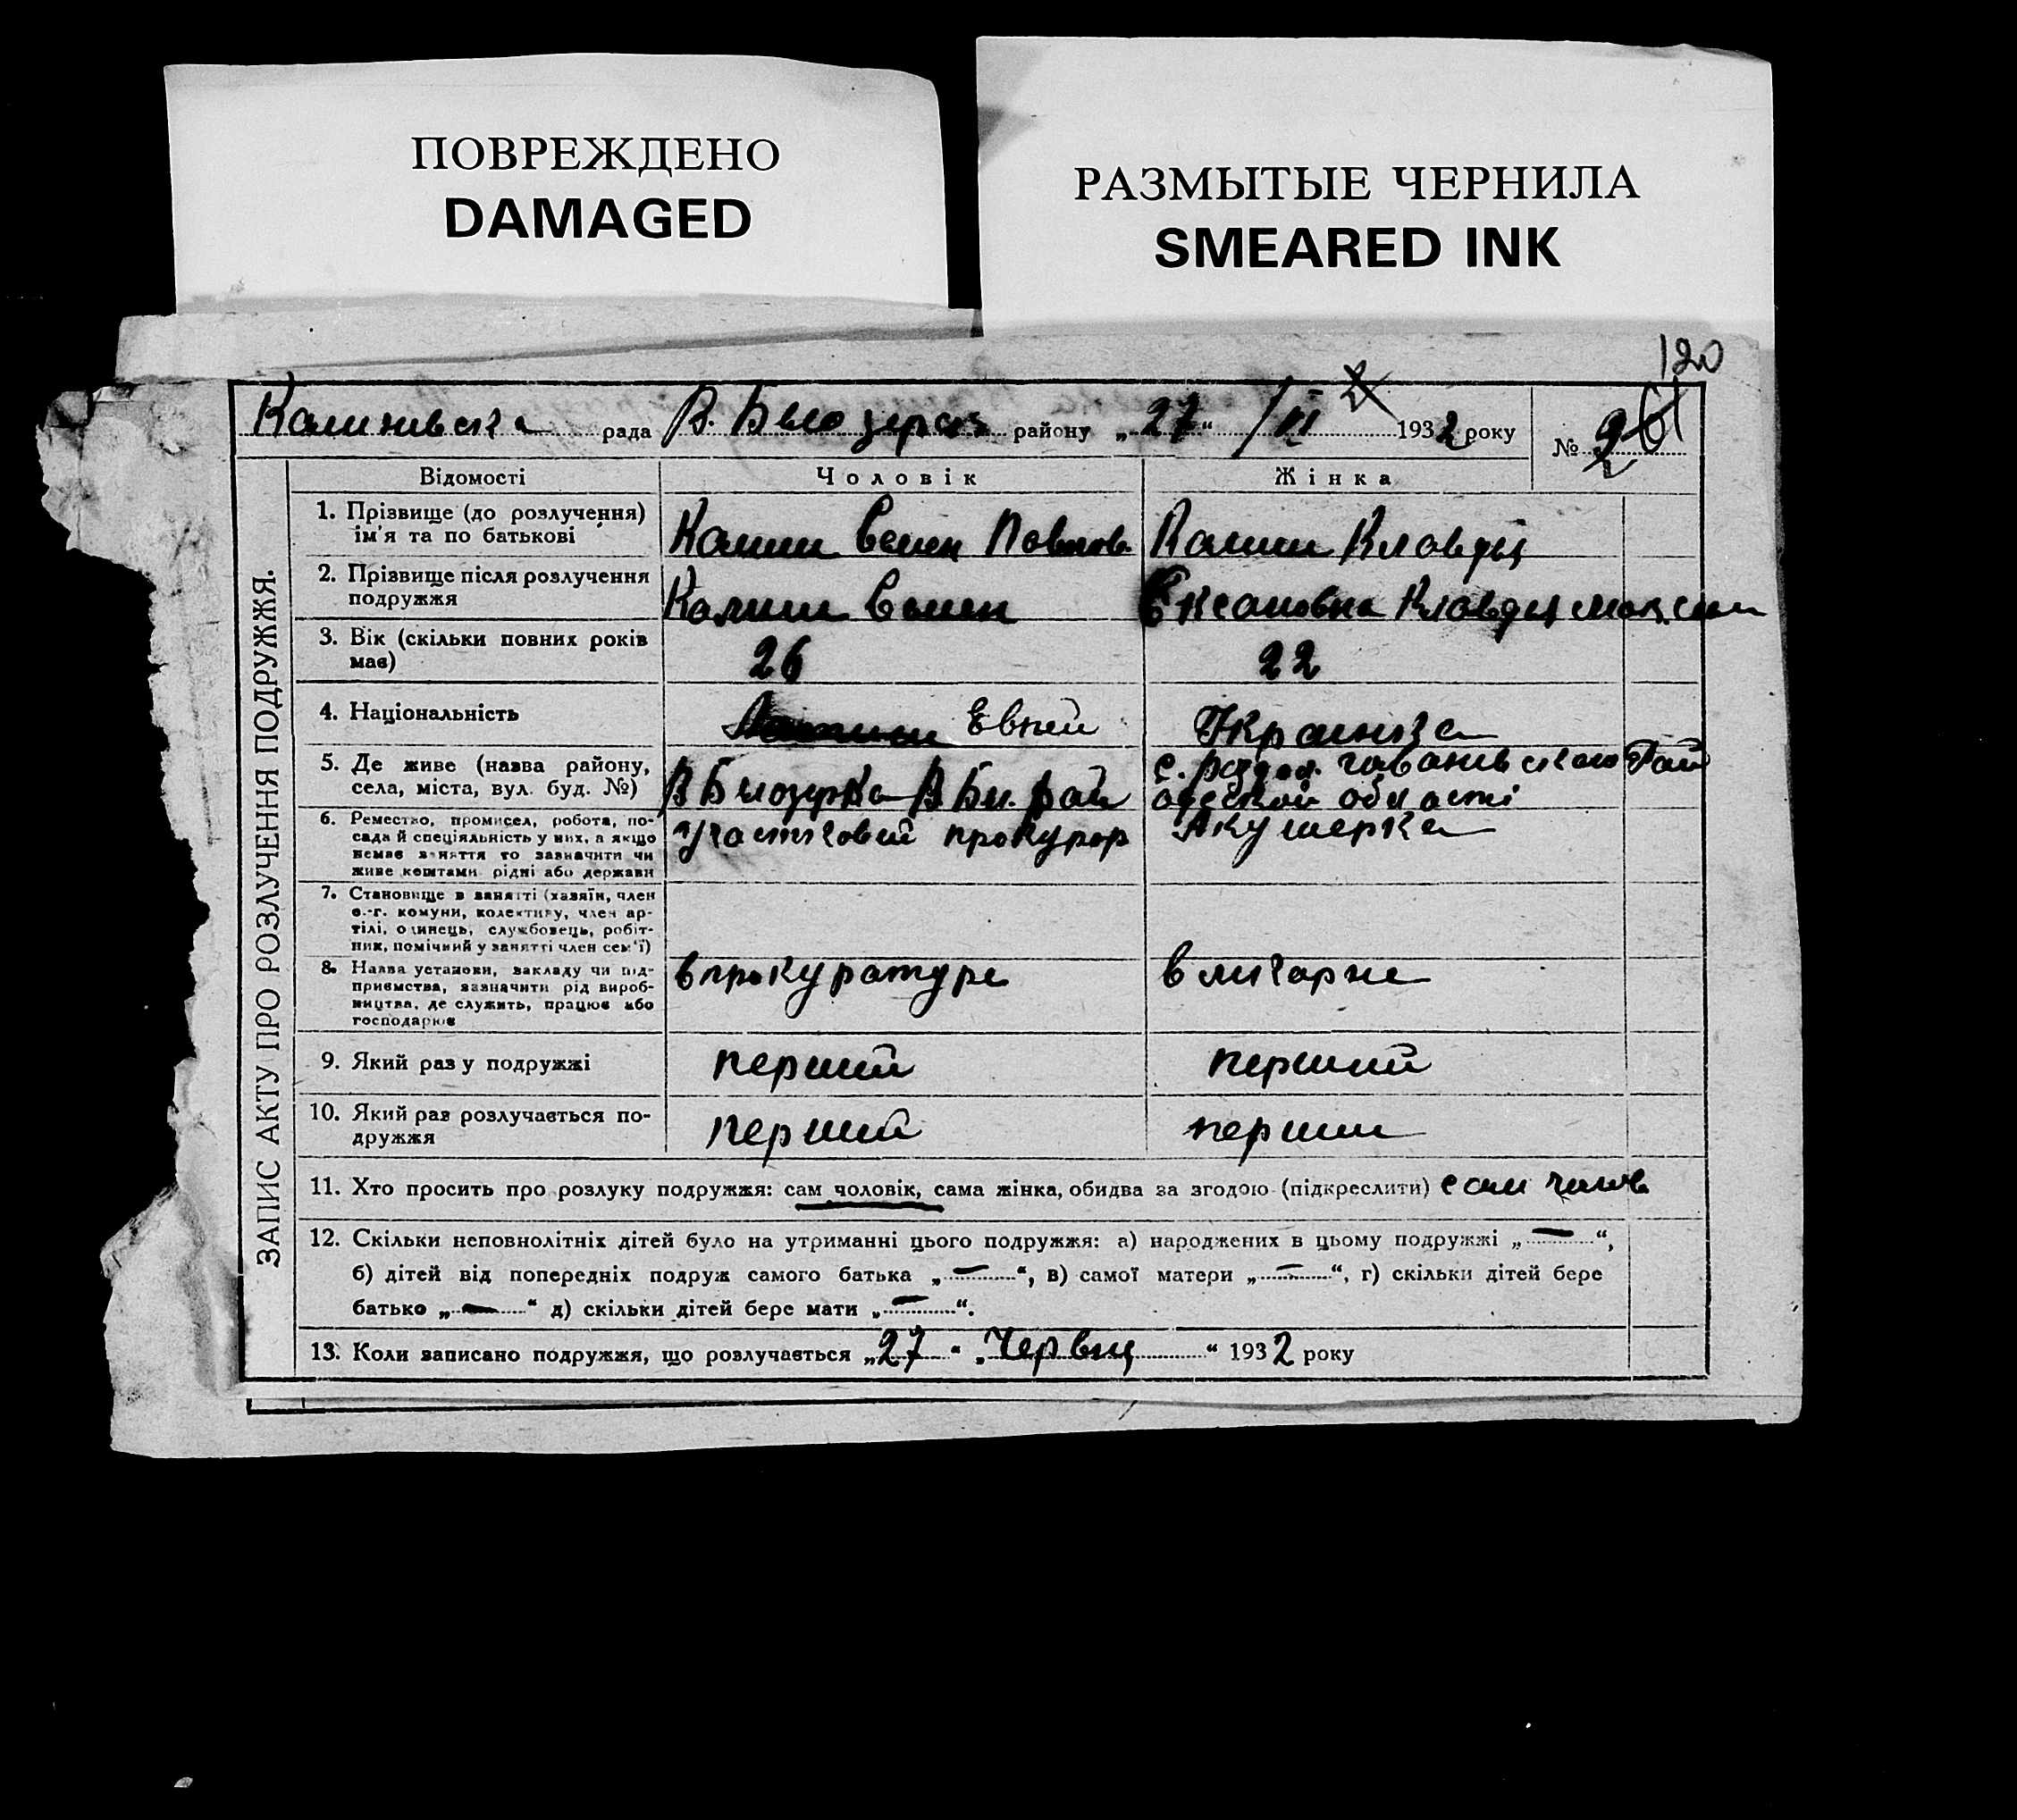 ПОВРЕЖДЕНО
DAMAGED
РАЗМЫТЫЕ ЧЕРНИЛА
SMEARED INK
120
рада В. Білозерка району „27“ /VI 1932 року №
ЗАПИС АКТУ ПРО РОЗЛУЧЕННЯ ПОДРУЖЖЯ.
Відомості Чоловік Жінка
1. Прізвище (до розлучення) ім'я та по батькові
Калиш Семен Павлов. Калиш Клавдія
2. Прізвище після розлучення подружжя
Калиш Семен Клавдия
3. Вік (скільки повних років має)
26 22
4. Національність
Еврей Украинка
5. Де живе (назва району, села, міста, вул. буд. №)
В Білозерка В Біл. рай
одеской області
6. Ремество, промисел, робота, посада й спеціяльність у них, а якщо немає заняття то зазначити чи живе коштами рідні або держави
Участковий прокурор Акушерка
7. Становище в занятті (хазяїн, член с.-г. комуни, колективу, член артілі, одинець, службовець, робітник, помічний у занятті член сем'ї)
8. Назва установи, закладу чи підприємства, зазначити рід виробництва, де служить, працює або господарює
в прокуратуре в личарне
9. Який раз у подружжі
перший перший
10. Який раз розлучається подружжя
перший перший
11. Хто просить про розлуку подружжя: сам чоловік, сама жінка, обидва за згодою (підкреслити) сам чолов
12. Скільки неповнолітніх дітей було на утриманні цього подружжя: а) народжених в цьому подружжі „—“,
б) дітей від попередніх подруж самого батька „—“, в) самої матери „—“, г) скільки дітей бере
батько „—“ д) скільки дітей бере мати „—“.
13. Коли записано подружжя, що розлучається „27“ „Червця“ 1932 року